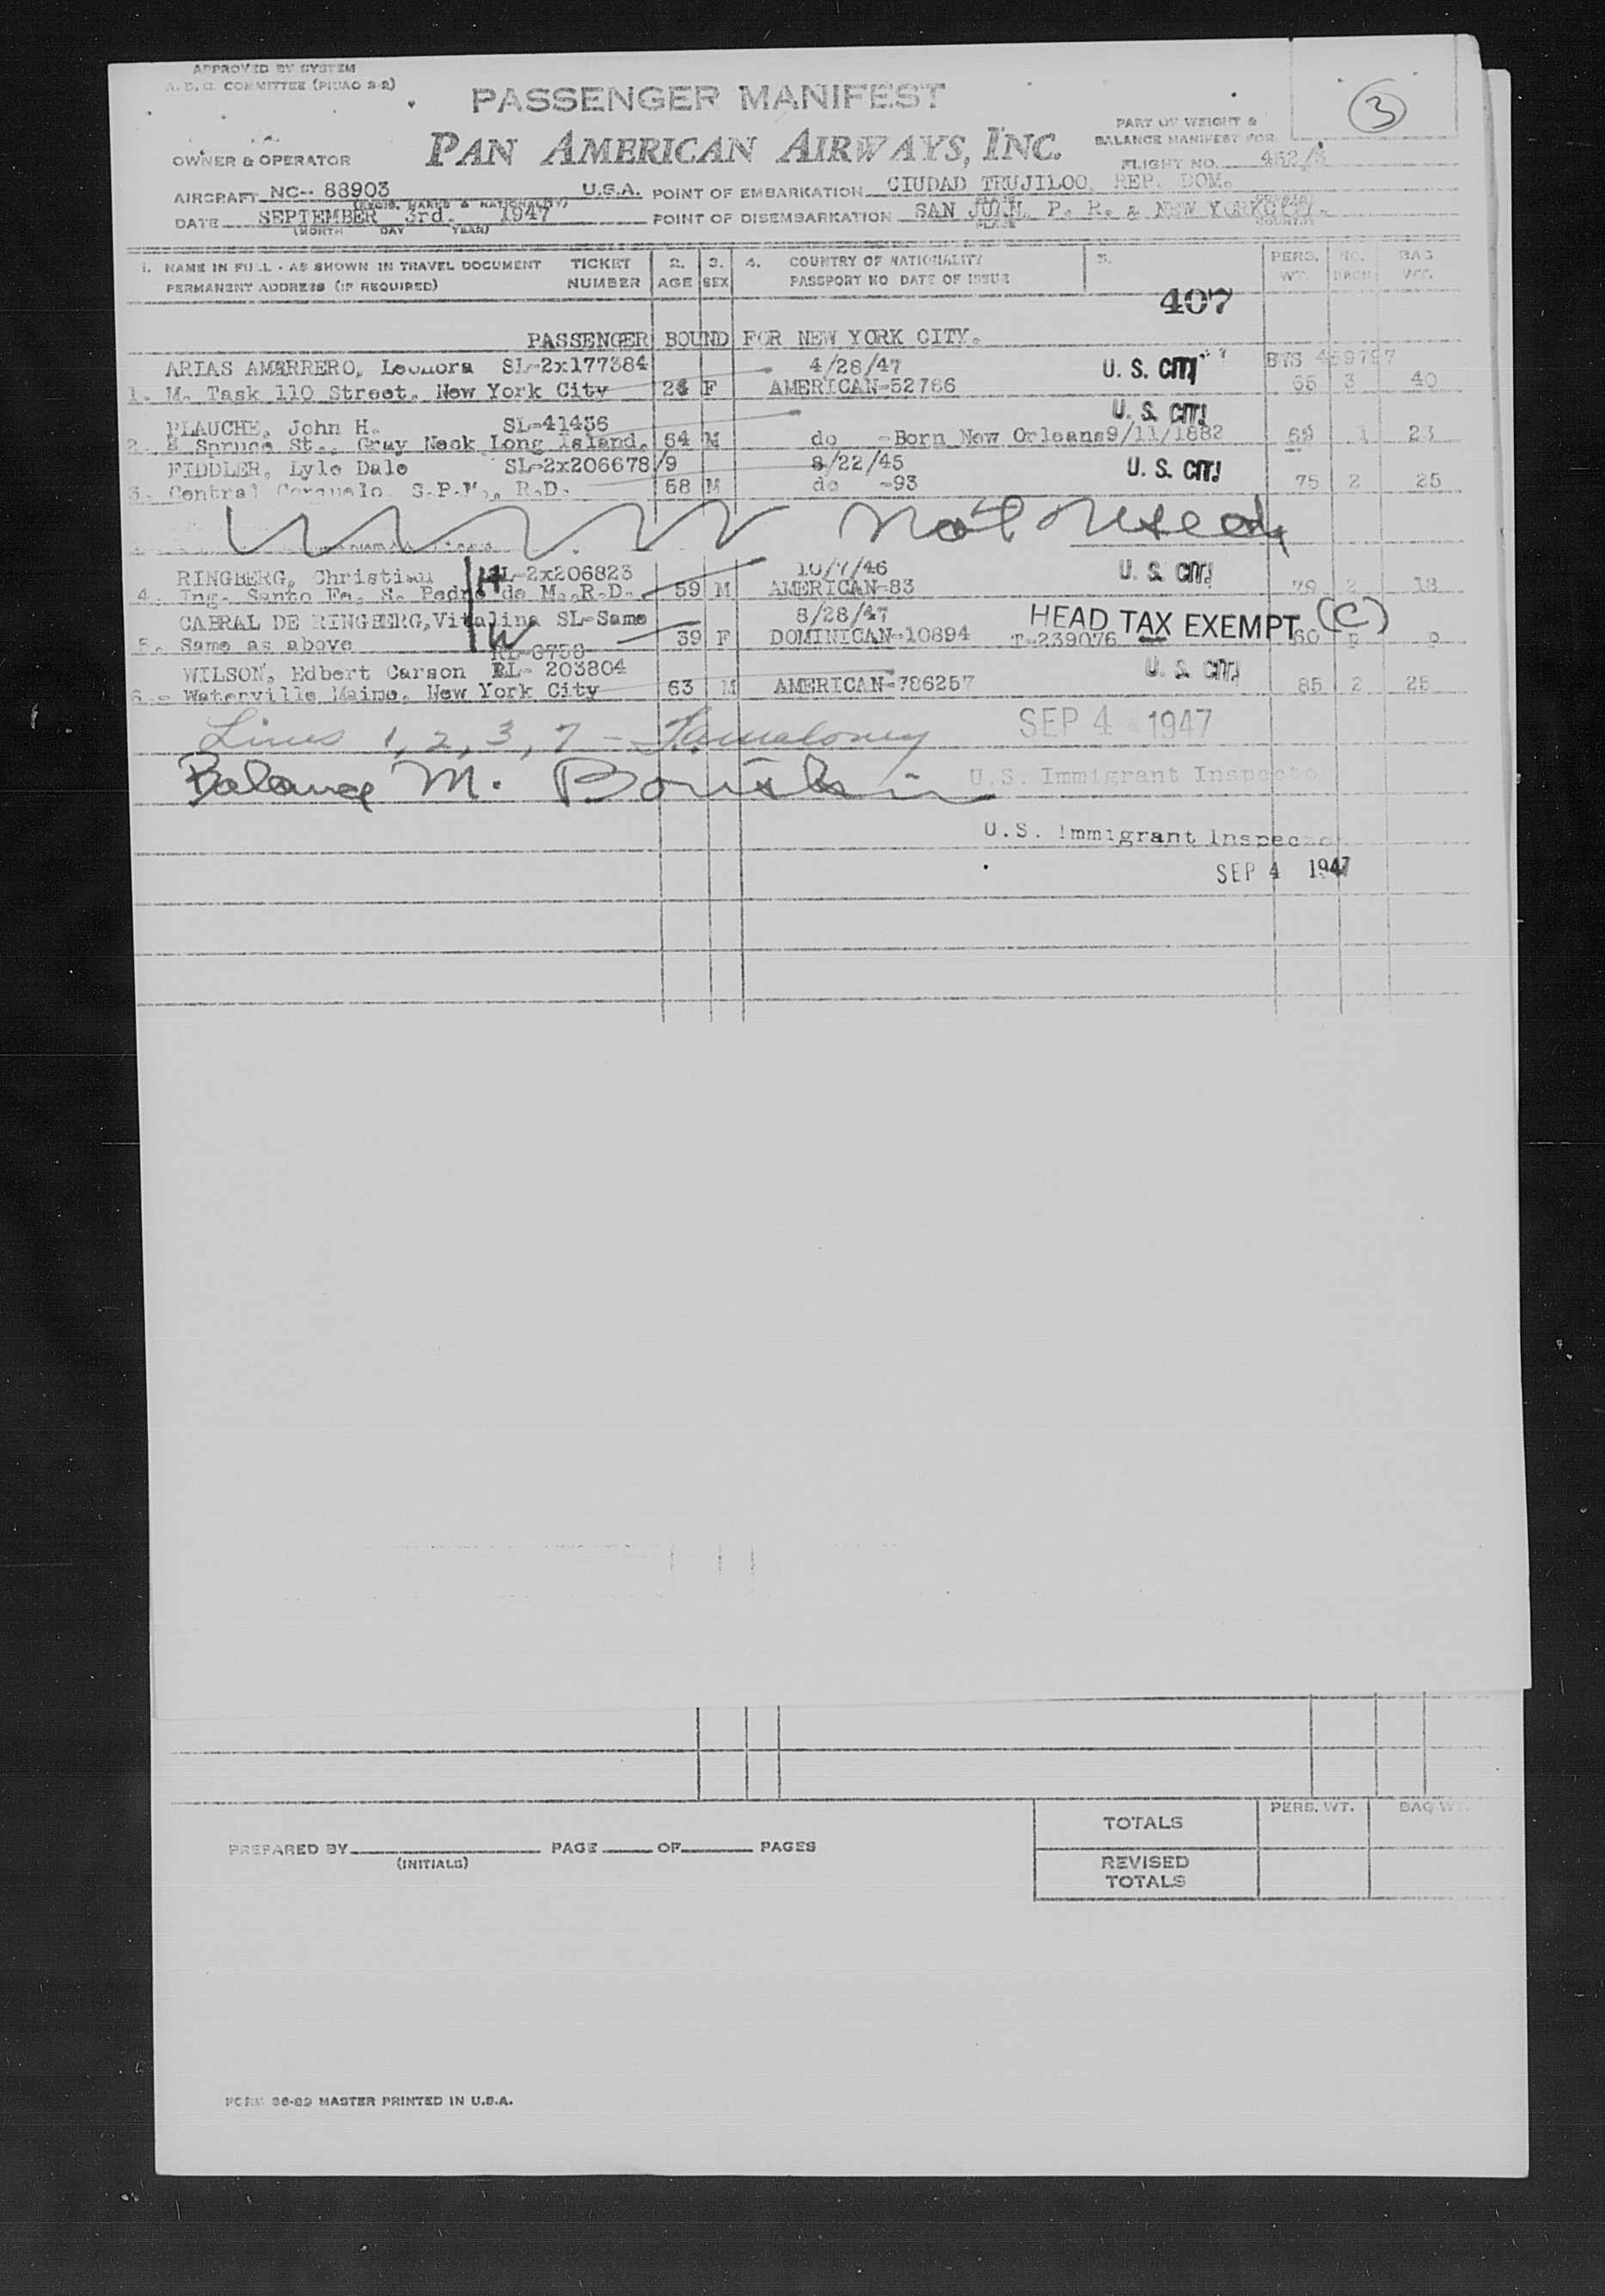 APPROVED BY SYSTEM
A. D. C. COMMITTEE (PICAO 2-2)
PASSENGER MANIFEST
3
PART OF WEIGHT &
BALANCE MANIFEST FOR
OWNER & OPERATOR
PAN AMERICAN AIRWAYS, INC.
FLIGHT NO. 452/3
AIRCRAFT NC-- 88903 U.S.A. POINT OF EMBARKATION CIUDAD TRUJILOO, REP. DOM.
(REGIS. MARKS & NATIONALITY)
DATE SEPTEMBER 3rd. 1947 POINT OF DISEMBARKATION SAN JUAN, P. R. & NEW YORK CITY.
(MONTH DAY YEAR) PLACE COUNTRY
1. NAME IN FULL - AS SHOWN IN TRAVEL DOCUMENT TICKET 2. 3. 4. COUNTRY OF NATIONALITY 5. PERS. NO. BAG
PERMANENT ADDRESS (IF REQUIRED) NUMBER AGE SEX PASSPORT NO DATE OF ISSUE WT. PACK WT.
407
PASSENGER BOUND FOR NEW YORK CITY.
ARIAS AMARRERO, Leonora SL-2x177384 4/28/47 U. S. CIT! BTS 459797
1. M. Task 110 Street, New York City F AMERICAN-52766 65 3 40
PLAUCHE, John H. SL-41436 U. S. CIT!
2. Spruce St., Gray Neck Long Island. 64 M do -Born New Orleans 9/11/1882 69 1 23
FIDDLER, Lyle Dale SL-2x206678/9 8/22/45 U. S. CIT!
3. Central S.P.M., R.D. 58 M do -93 75 2 25
Not Used
RINGBERG, Christian SL-2x206823 H 10/7/46 U. S. CIT!
4. Ing. Santo Fe, S. Pedro de M., R.D. 59 M AMERICAN-83 79 2 18
CABRAL DE RINGBERG, Vitalina SL-Same 8/28/47 HEAD TAX EXEMPT (C)
5. Same as above W 39 F DOMINICAN-10894 T-239076 60 p p
RL-6758
WILSON, Edbert Carson RL- 203804 U. S. CIT!
6. - Waterville Maine, New York City 63 M AMERICAN-786257 85 2 25
Lines 1, 2, 3, 7 - SEP 4 1947
Balance M. U.S. Immigrant Inspector
U.S. Immigrant Inspector
SEP 4 1947
PERS. WT. BAG WT.
TOTALS
PREPARED BY PAGE OF PAGES
(INITIALS)
REVISED
TOTALS
FORM 36-89 MASTER PRINTED IN U.S.A.